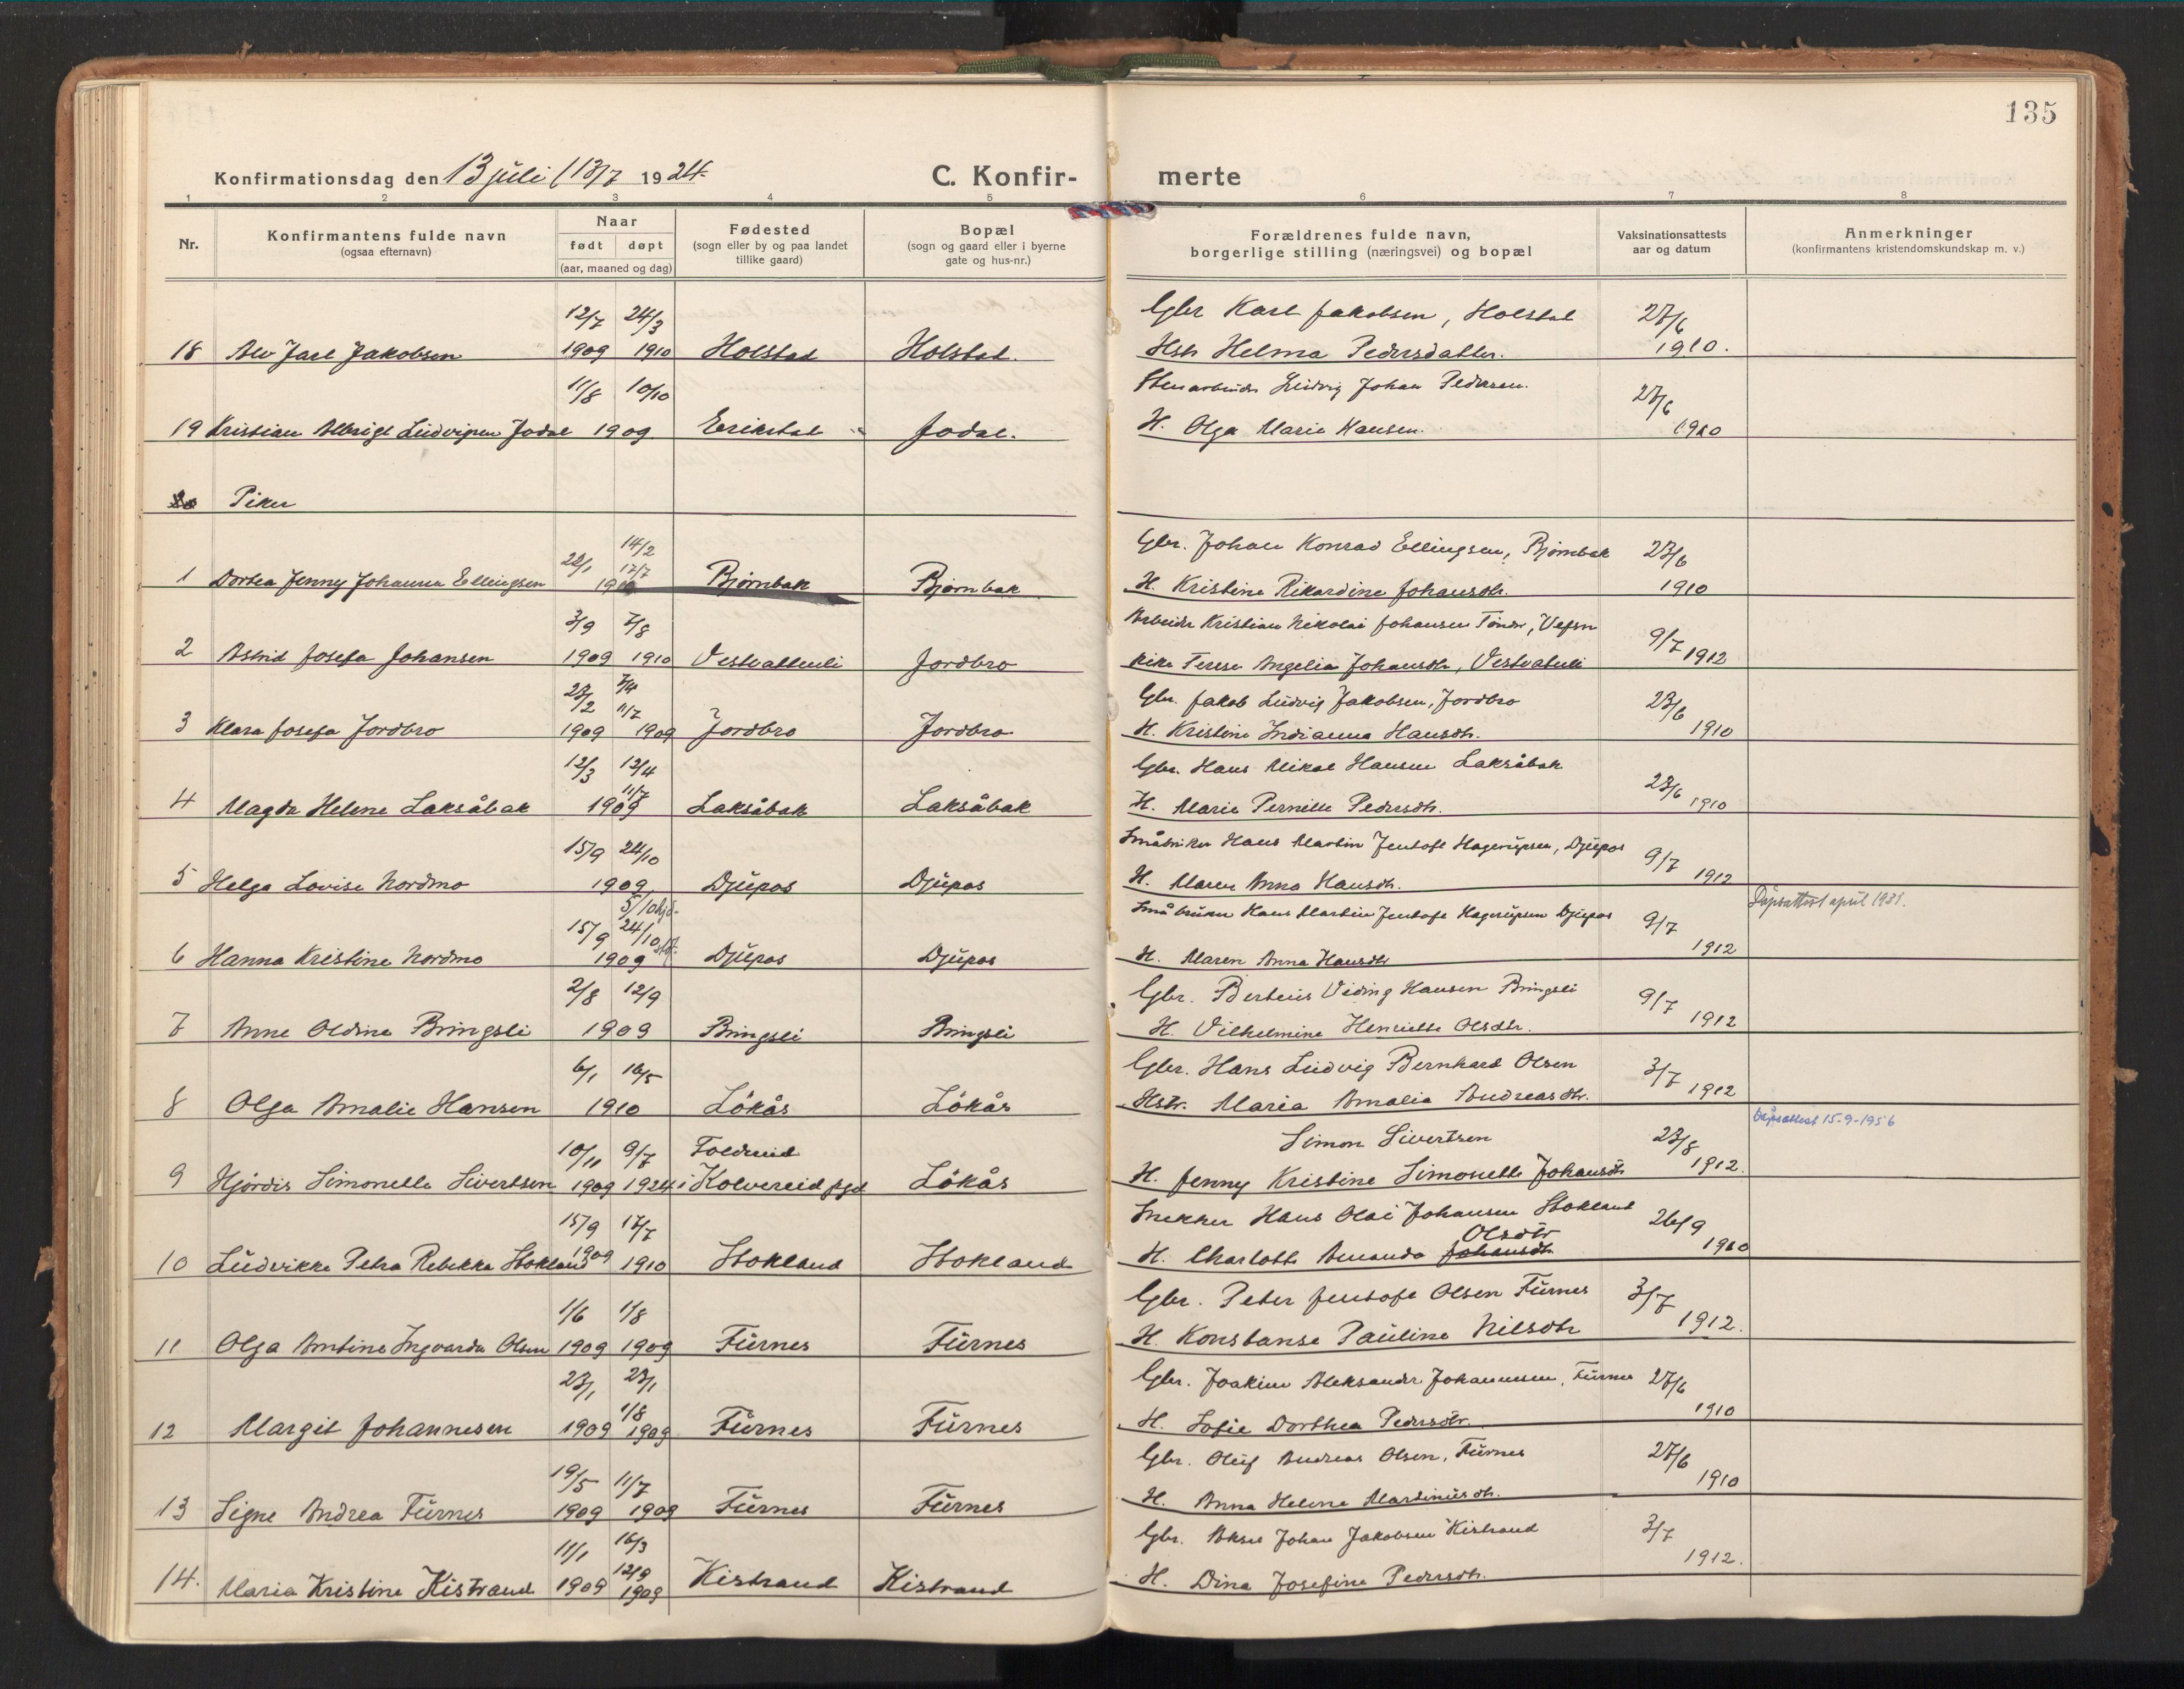 135
Konfirmationsdag den 13 juli (13/7 1924.
C. Konfir- merte
1 2 3 4 5 6 7 8
Nr.
Konfirmantens fulde navn
(ogsaa efternavn)
Naar
født døpt
(aar, maaned og dag)
Fødested
(sogn eller by og paa landet
tillike gaard)
Bopæl
(sogn og gaard eller i byerne
gate og hus-nr.)
Forældrenes fulde navn,
borgerlige stilling (næringsvei) og bopæl
Vaksinationsattests
aar og datum
Anmerkninger
(konfirmantens kristendomskundskap m. v.)
12/7 24/3 Gbr Karl Jakobsen, Holstad 27/6
18 Alv Jarl Jakobsen 1909 1910 Holstad Holstad. Hstr Helma Pedersdatter. 1910.
11/8 10/10 Stenarbeider Ludvig Johan Pedersen. 27/6
19 Kristian Albrigt Ludvigsen Jodal 1909 Erikstad Jodal. H. Olga Marie Hansen. 1910
20 Piker
22/1 14/2 17/7 Gbr. Johan Konrad Ellingsen, Bjørnbak 27/6
1 Dortea Jenny Johanna Ellingsen 1910 Bjørnbak Bjørnbak H. Kristine Rikardine Johansdtr. 1910
3/9 7/8 Arbeider Kristian Nikolai Johansen Tønder, Vefsn 9/7
2 Astrid Josefa Johansen 1909 1910 Vestvatnli Jordbro Pike Terese Angelia Johansdtr, Vestvatnli 1912
27/2 7/4 11/7 Gbr. Jakob Ludvig Jakobsen, Jordbro 27/6
3 Klara Josefa Jordbro 1909 1909 Jordbro Jordbro H. Kristine Indianna Hansdtr. 1910
12/3 12/4 11/7 Gbr. Hans Mikal Hansen Laksåbak 27/6
4 Magda Helene Laksåbak 1909 Laksåbak Laksåbak H. Marie Pernille Pedersdtr. 1910
15/9 24/10 Småbruker Hans Martin Jentoft Hagerupsen, Djupos 9/7
5 Helga Lovise Nordmo 1909 Djupos Djupos H. Maren Anna Hansdtr. 1912
5/10 hjd. 15/9 24/10 stf. Småbruker Hans Martin Jentoft Hagerupsen Djupos 9/7 Dåpsattest april 1931.
6 Hanna Kristine Nordmo 1909 Djupos Djupos H. Maren Anna Hansdtr 1912
2/8 12/9 Gbr. Berteus Viding Hansen Bringsli 9/7
7 Anne Oldine Bringsli 1909 Bringsli Bringsli H. Vilhelmine Henriette Olsdtr. 1912
6/1 16/5 Gbr. Hans Ludvig Bernhard Olsen 3/7
8 Olga Amalie Hansen 1910 Løkås Løkås Hstr. Maria Amalia Andreasdtr. 1912
10/11 9/7 Foldreid Simon Sivertsen 27/8 Dåpsattest 15-9-1956
9 Hjørdis Simonette Sivertsen 1909 1924 i Kolvereid pgd Løkås H. Jenny Kristine Simonette Johansdtr 1912.
15/9 17/7 Snekker Hans Olai Johansen Stokland 26/9
10 Ludvikke Petra Rebekka Stokland 1909 1910 Stokland Stokland H. Charlotte Amanda Johansdtr Olsdtr 1910
1/6 1/8 Gbr. Peter Jentoft Olsen Furnes 3/7
11 Olga Antine Ingvarda Olsen 1909 1909 Furnes Furnes H. Konstanse Pauline Nilsdtr 1912.
23/1 23/1 Gbr. Joakim Aleksander Johannesen, Furnes 27/6
12 Margit Johannesen 1909 1/8 1909 Furnes Furnes H. Sofie Dorthea Pedersdtr. 1910
19/5 11/7 Gbr. Oluf Andreas Olsen, Furnes 27/6
13 Signe Andrea Furnes 1909 1909 Furnes Furnes H. Anna Helene Martinusdtr. 1910
11/1 16/3 Gbr. Aksel Johan Jakobsen Kistrand 3/7
14. Maria Kristine Kistrand 1909 12/9 1909 Kistrand Kistrand H. Dina Josefine Pedersdtr. 1912.